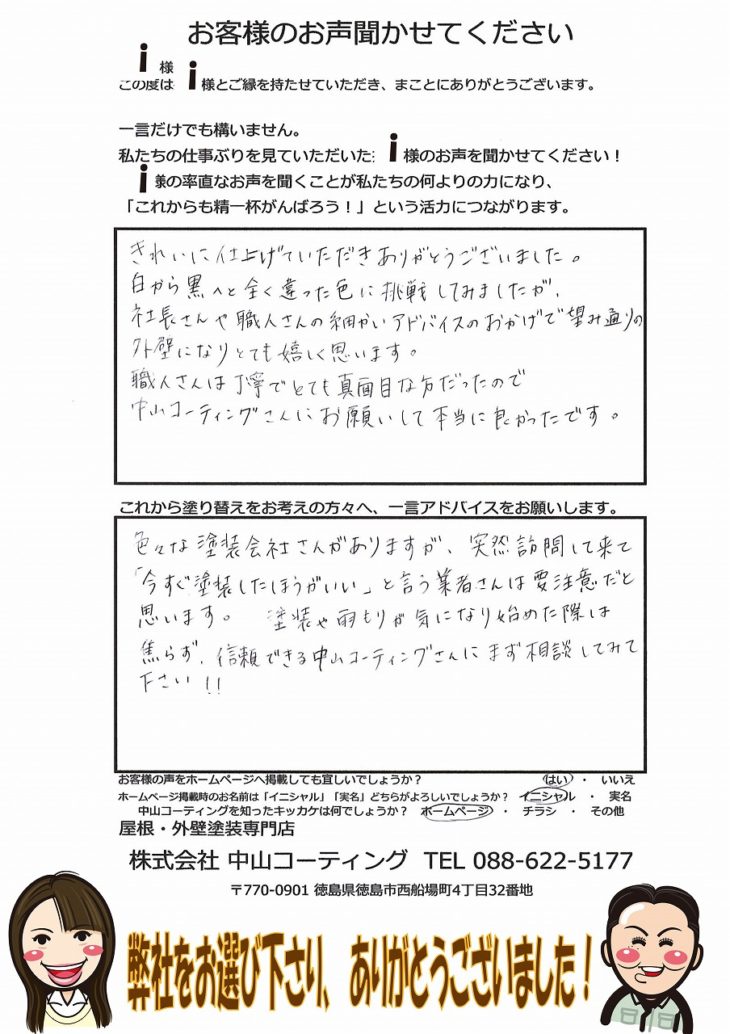 お客様のお声聞かせてください
i 様
この度は i 様とご縁を持たせていただき、まことにありがとうございます。
一言だけでも構いません。
私たちの仕事ぶりを見ていただいた i 様のお声を聞かせてください！
i 様の率直なお声を聞くことが私たちの何よりの力になり、
「これからも精一杯がんばろう！」という活力につながります。
きれいに仕上げていただきありがとうございました。
白から黒へと全く違った色に挑戦してみましたが、
社長さんや職人さんの細かいアドバイスのおかげで望み通りの
外壁になりとても嬉しく思います。
職人さんは丁寧でとても真面目な方だったので
中山コーティングさんにお願いして本当に良かったです。
これから塗り替えをお考えの方々へ、一言アドバイスをお願いします。
色々な塗装会社さんがありますが、突然訪問して来て
「今すぐ塗装したほうがいい」と言う業者さんは要注意だと
思います。 塗装や雨もりが気になり始めた際は
焦らず、信頼できる中山コーティングさんにまず相談してみて
下さい!!
お客様の声をホームページへ掲載しても宜しいでしょうか？ はい ・ いいえ
ホームページ掲載時のお名前は「イニシャル」「実名」どちらがよろしいでしょうか？ イニシャル ・ 実名
中山コーティングを知ったキッカケは何でしょうか？ ホームページ ・ チラシ ・ その他
屋根・外壁塗装専門店
株式会社 中山コーティング TEL 088-622-5177
〒770-0901 徳島県徳島市西船場町4丁目32番地
弊社をお選び下さり、ありがとうございました！